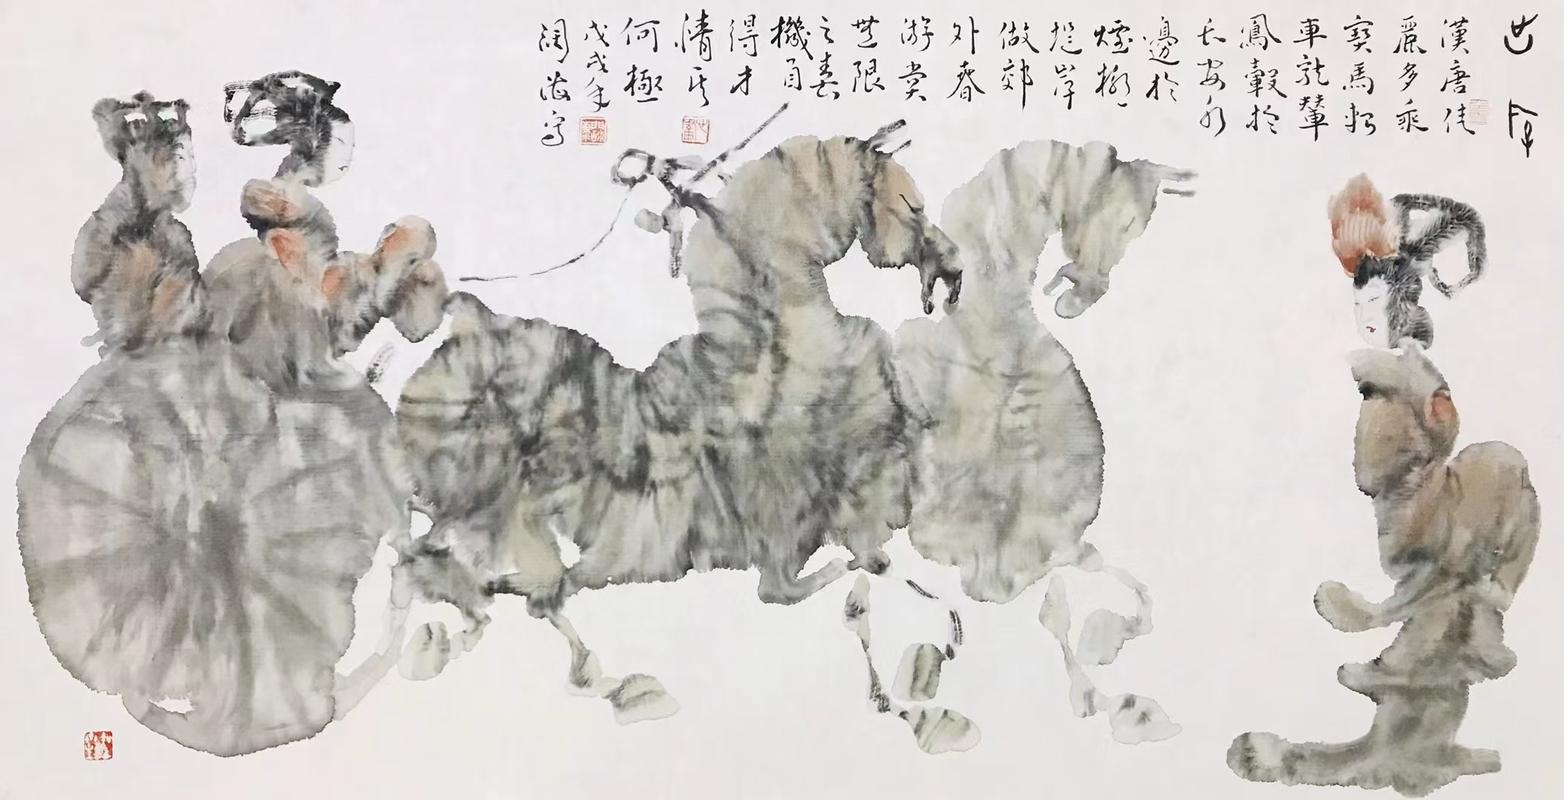 漢唐佳
麗多乘
寶馬軺
車龍輦
鳳轂於
長安水
邊於
煙柳
堤岸
做郊
外春
游賞
無限
之春
機自
得才
情其
何極
戊戌年
海寫